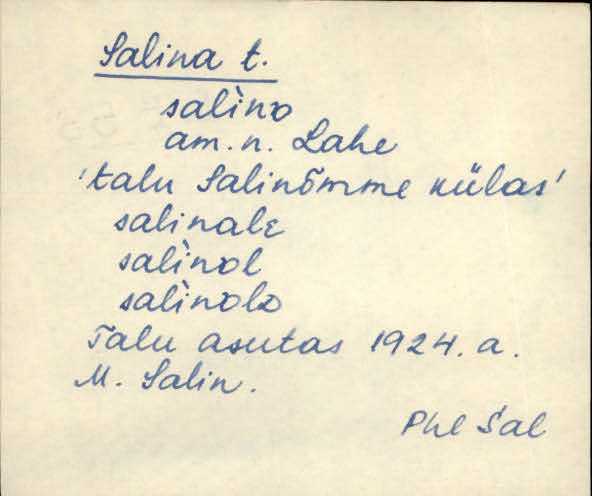 Salina t.
salìno
am. n. Lahe
'talu Salinõmme külas'
salinale
salìnol
salìnolo
Talu asutas 1924. a.
M. Salin.
Phl Sal